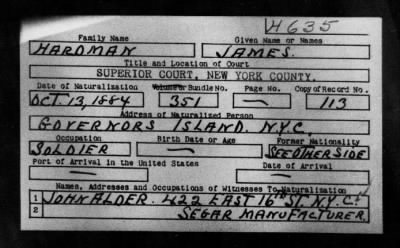 H635
Family Name Given Name or Names
HARDMAN JAMES.
Title and Location of Court
SUPERIOR COURT, NEW YORK COUNTY.
Date of Naturalization Volume or Bundle No. Page No. Copy of Record No.
OCT. 13, 1884 351 — 113
Address of Naturalized Person
GOVERNORS ISLAND. N.Y.C.
Occupation Birth Date or Age Former Nationality
SOLDIER — SEE OTHER SIDE
Port of Arrival in the United States Date of Arrival
— —
Names, Addresses and Occupations of Witnesses To Naturalization
1 JOHN ALDER. 422 EAST 16TH ST. N.Y.C.
2 SEGAR MANUFACTURER.